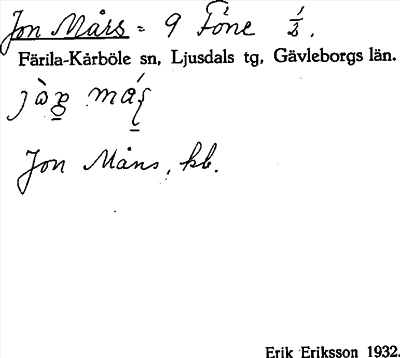 Jon Mårs = 9 Föne 1/2.
Färila-Kårböle sn, Ljusdals tg, Gävleborgs län.
Jon Måns, kb.
Erik Eriksson 1932.